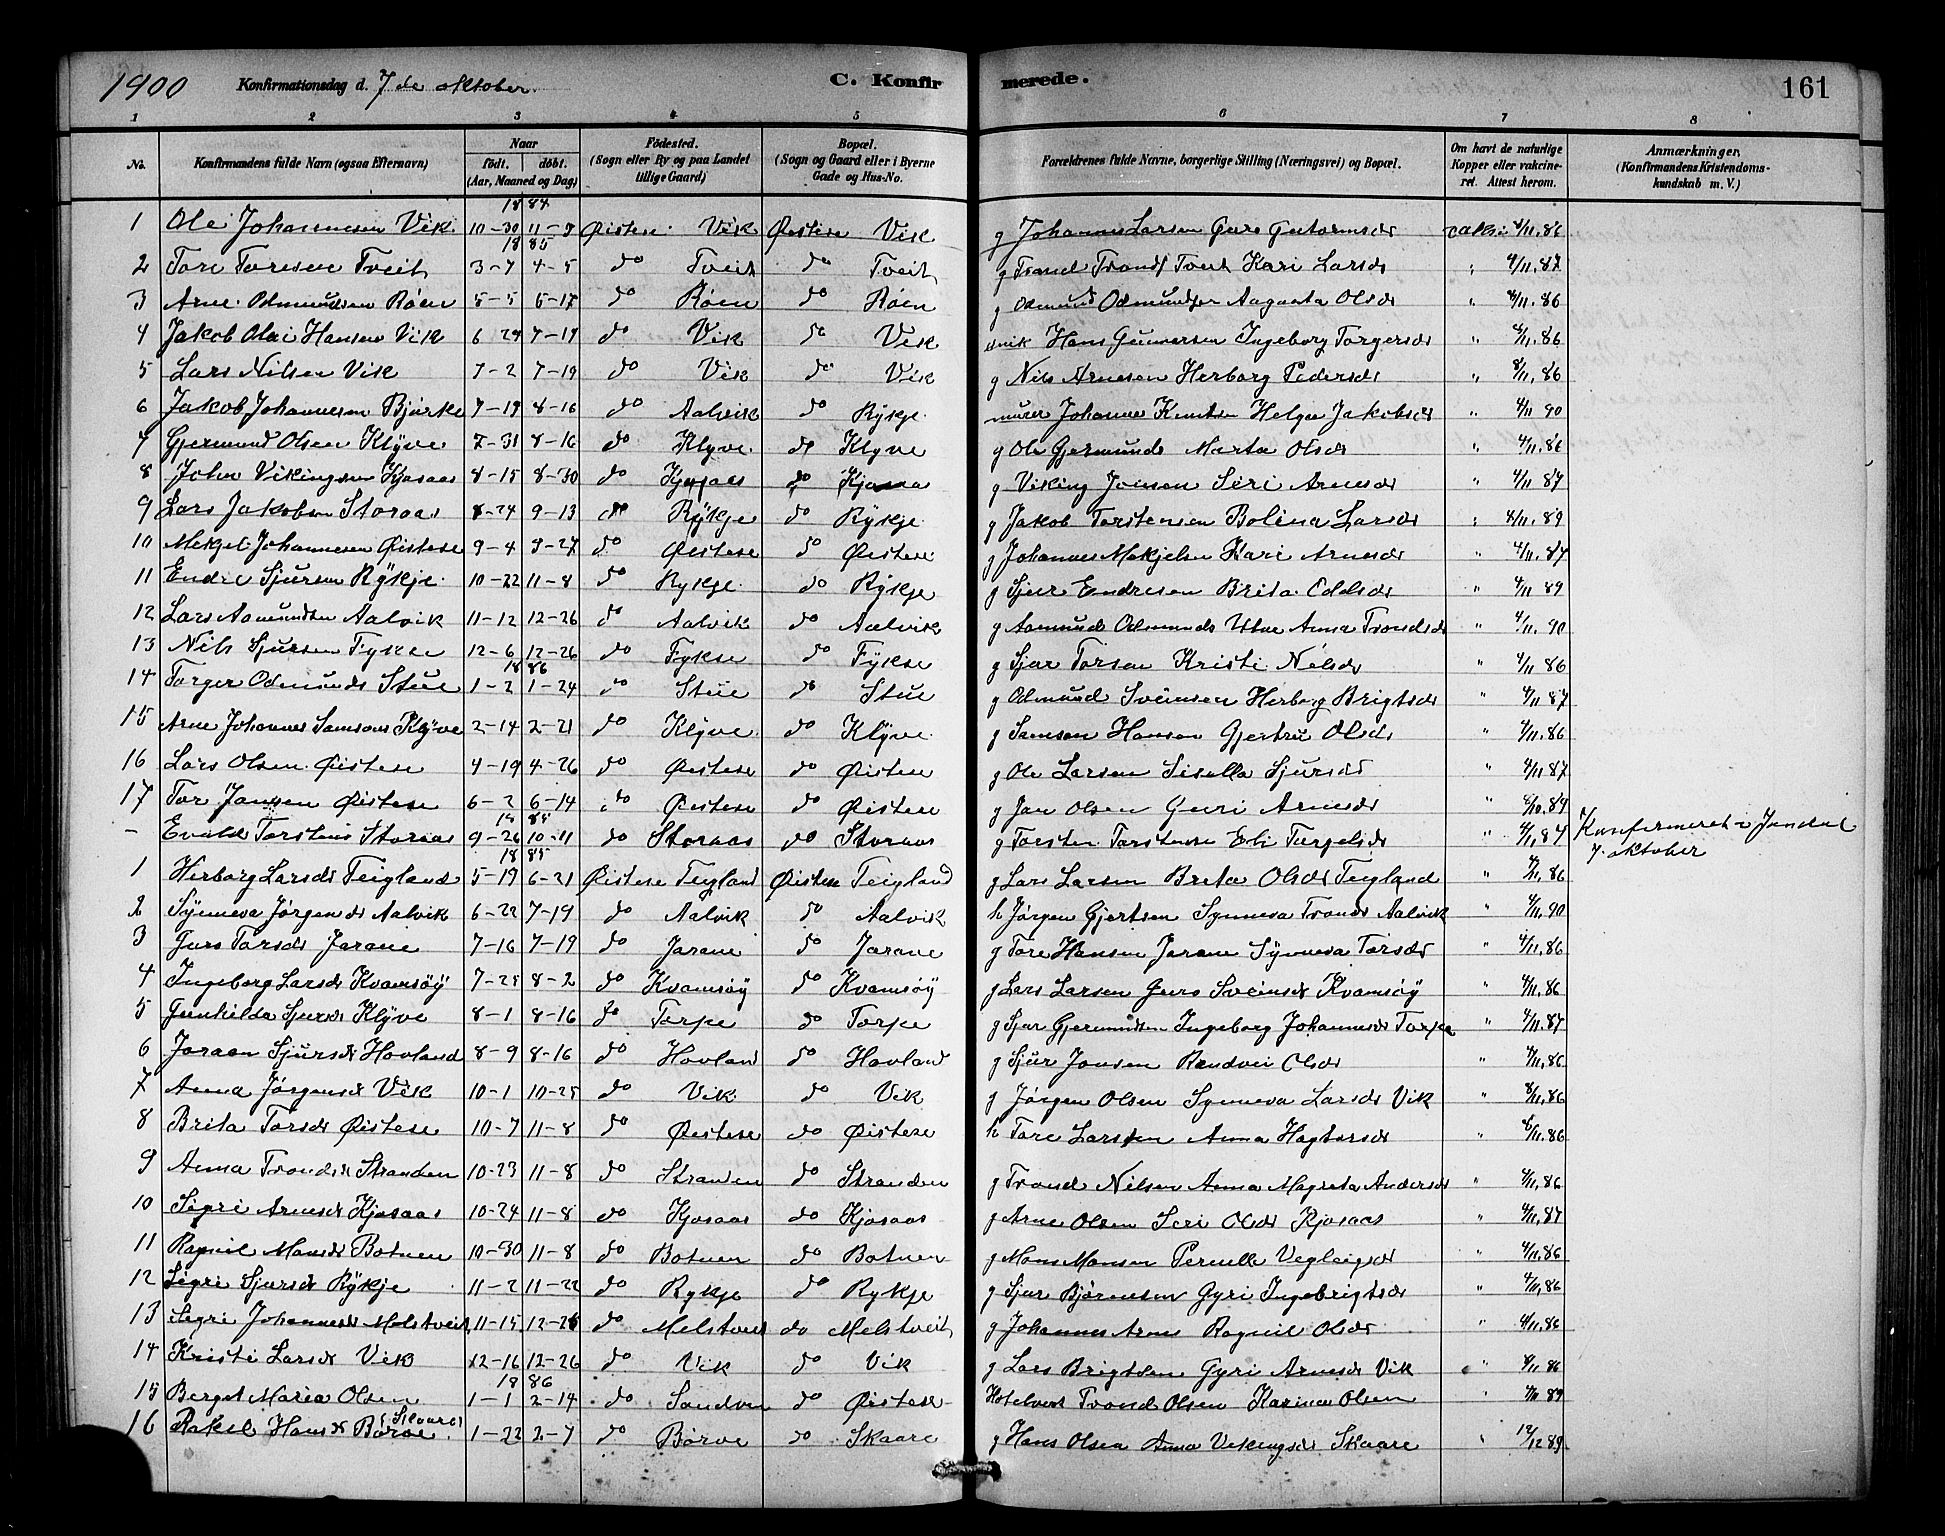 1900 Konfirmationsdag d. 7 de oktober. C. Konfirmerede. 161
1 2 3 4 5 6 7 8
No. Konfirmandens fulde Navn (ogsaa Efternavn) Naar født. døbt. (Aar, Maaned og Dag) Fødested. (Sogn eller By og paa Landet tillige Gaard) Bopæl. (Sogn og Gaard eller i Byerne Gade og Hus-No. Forældrenes fulde Navne, borgerlige Stilling (Næringsvei) og Bopæl. Om havt de naturlige Kopper eller vakcineret. Attest herom. Anmærkninger. (Konfirmandens Kristendomskundskab m. V.)
18 84
1 Ole Johannesen Vik 10-30 11-9 Øistese Vik Øistese Vik g Johannes Larsen Guro Gutormsdr 4/11.86
18 85
2 Tore Toresen Tveit 3-7 4-5 do Tveit do Tveit g Trond Tveit Kari Larsdr " 4/11.87
3 Arne Odmundsen Røen 5-5 5-17 do Røen do Røen g Odmund Odmundsen Augusta Olsdr " 4/11.86
4 Jakob Olai Hansen Vik 6 24 7-19 do Vik do Vik Hans Gunnarsen Ingeborg Torgersdr " 4/11.86
5 Lars Nilsen Vik 7-2 7-19 do Vik do Vik g Nils Arnesen Herborg Pedersdr " 8/11.86
6 Jakob Johannesen Bjørke 7-19 8-16 do Aalvik do Rykje murer Johannes Knutsen Helga Jakobsdr " 4/11 90
7 Gjermund Olsen Klyve 7-31 8-16 do Klyve do Klyve g Ole Gjermunds Marta Olsdr " 4/11.86
8 John Vikingsen Kjosaas 8-15 8-30 do Kjosaas do Kjosaas g Viking Jonson Siri Arnesdr " 4/11 87
9 Lars Jakobsen Storaas 8-24 9-13 do Rykje do Rykje g Jakob Torstensen Bolina Larsdr " 4/11.89
10 Mekjel Johannesen Øistese 9-4 9-27 do Øistese do Øistese g Johannes Mekjelsen Kari Arnesdr " 4/11.87
11 Endre Sjursen Rykje 10-22 11-8 do Rykje do Rykje g Sjur Endresen Brita Oddsdr " 4/11 89
12 Lars Aamundsen Aalvik 11-12 12-26 do Aalvik do Aalvik g Aamund Odmunds Utne Anna Trondsdr " 4/11.90
13 Nils Sjursen Fykse 12-6 12-26 do Fykse do Fykse g Sjur Torsen Kristi Nilsdr " 4/11 86
18 86
14 Torger Odmunds Stue 1-2 1-24 do Stue do Stue g Odmund Sveinsen Herborg Brigtsdr " 4/11 87
15 Arne Johannes Samsons Klyve 2-14 2-21 do Klyve do Klyve g Samson Hansen Gjertru Olsdr " 4/11.86
16 Lars Olsen Øistese 4-19 4-26 do Øistese do Øistese g Ole Larsen Sisella Sjursdr " 4/11 87
17 Tor Jansen Øistese 6-2 6-14 do Øistese do Øistese g Jan Olsen Guri Arnesdr "
18 85
- Evald Torstens Storaas 9-26 10-11 do Storaas do Storaas g Torsten Torstense Eli Torgilsdr " Konfirmeret i Jondal 7. oktober
18 85
1 Herborg Larsdr Teigland 5-19 6-21 Øistese Teigland Øistese Teigland g Lars Larsen Brita Olsdr Teigland " 4/11.86
2 Synneva Jørgensdr Aalvik 6-22 7-19 do Aalvik do Aalvik h Jørgen Gjertsen Synneva Tronds Aalvik " 4/11.90
3 Guro Torsdr Jarane 7-16 7-19 do Jarane do Jarane g Tore Hansen Jarane Synneva Torsdr " 4/11.86
4 Ingeborg Larsdr Kvamsøy 7-25 8-2 do Kvamsøy do Kvamsøy g Lars Larsen Guro Sveinsdr Kvamsøy " 4/11.86
5 Gunhilda Sjursdr Klyve 8-1 8-16 do Torpe do Torpe g Sjur Gjermundsen Ingeborg Johannesdr Torpe " 4/11.87
6 Joraan Sjursdr Hovland 8-9 8-16 do Hovland do Hovland g Sjur Jonsen Randvei Olsdr " 4/11.86
7 Anna Jørgensdr Vik 10-1 10-25 do Vik do Vik g Jørgen Olsen Synneva Larsdr Vik " 8/11.86
8 Brita Torsdr Øistese 10-7 11-8 do Øistese do Øistese h Tore Larssen Anna Hagtorsdr " 8/11.86
9 Anna Trondsdr Stranden 10-23 11-8 do Stranden do Stranden g Trond Nilsen Anna Magreta Andersdr " 4/11.86
10 Sigri Arnesdr Kjosaas 10-24 11-8 do Kjosaas do Kjosaas g Arne Olsen Siri Olsdr Kjosaas " 4/11.87
11 Ragnil Monsdr Botnen 10-30 11-8 do Botnen do Botnen g Mons Monsen Pernille Vegleigsdr " 4/11.86
12 Sigri Sjursdr Rykje 11-2 11-22 do Rykje do Rykje g Sjur Bjørnsen Gyri Ingebrigtsdr " 4/11.86
13 Sigri Johannesdr Melstveit 11-15 12-26 do Melstveit do Melstveit g Johannes Arnes Ragnil Olsdr " 4/11.86
14 Kristi Larsdr Vik 12-16 12-26 do Vik do Vik g Lars Brigtsen Gyri Arnesdr Vik " 8/11 86
18 86
15 Berget Maria Olsen 1-1 2-14 do Sandven do Øistese Hotelvert Trond Olsen Karina Olsen " 4/11 89
16 Rakel Hansdr Børve (Skaare) 1-22 2-7 do Børve do Skaare g Hans Olsen Anna Vikingsdr Skaare " 12/12 89